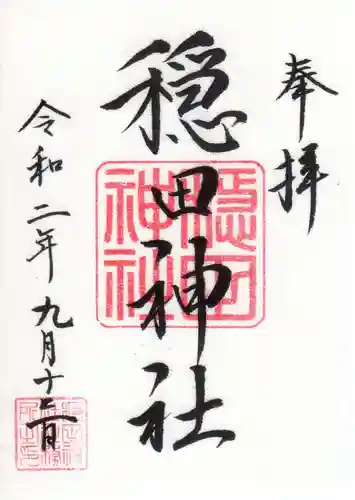 奉拝
穏田神社
令和二年九月十三日
穏田神社